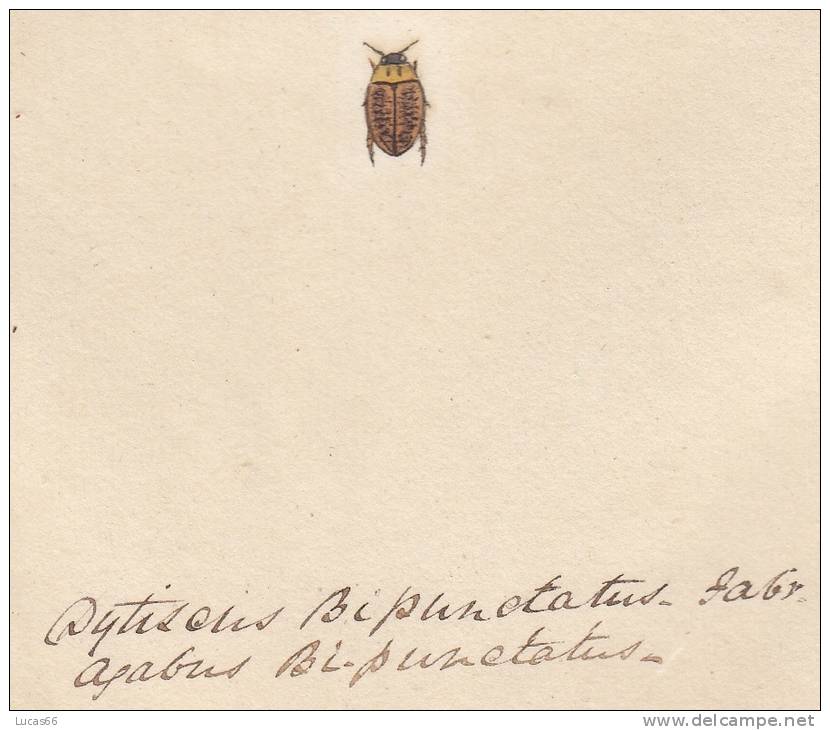 Dytiscus Bipunctatus. Fabr.
Agabus Bi-punctatus.
Lucas66
www.delcampe.net